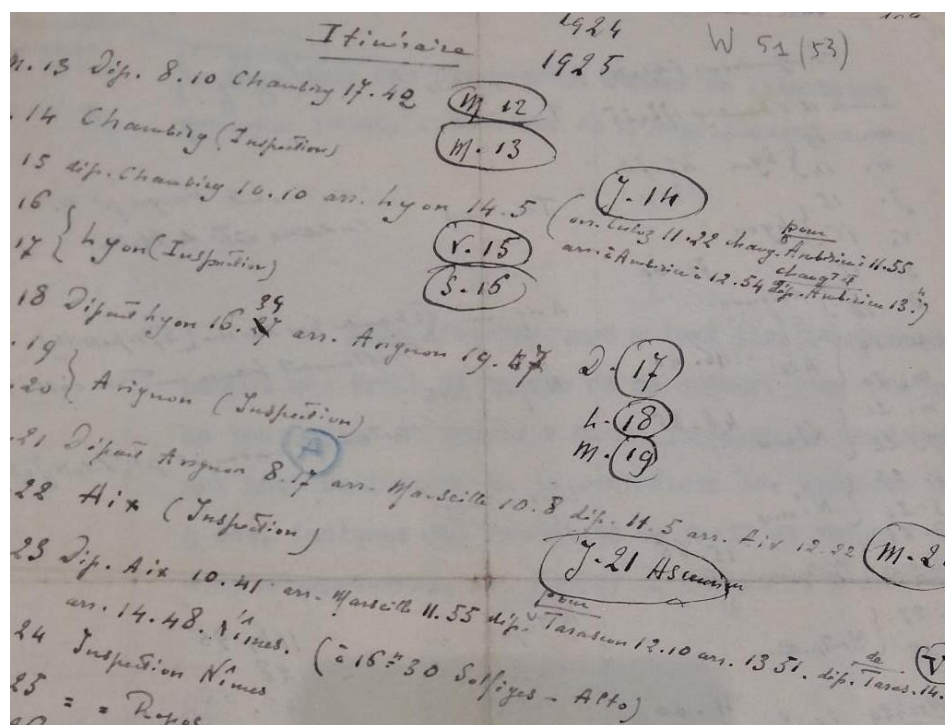 Itinéraire
1924
1925
W 51 (53)
M. 13 Dép. 8.10 Chambéry 17.42 M 12
. 14 Chambéry (Inspection) M. 13
15 dép. Chambéry 10.10 arr. Lyon 14.5 J. 14
(arr. Culoz 11.22 chang. pour Ambérieu 11.55
arr. à Ambérieu à 12.54 changt et dép. Ambérieu 13.h)
16
17 } Lyon (Inspection) V. 15
S. 16
18 Départ Lyon 16. 39 arr. Avignon 19. 47 D. 17
. 19
. 20 } Avignon (Inspection) L. 18
M. 19
. 21 Départ Avignon 8.17 arr. Marseille 10.8 dép. 11.5 arr. Aix 12.22 M. 2
A
22 Aix (Inspection) J. 21 Ascension
23 Dép. Aix 10.41 arr. Marseille 11.55 dép. pour Tarascon 12.10 arr. 13 51. dép. de Taras. 14. V
arr. 14.48. Nîmes. (à 16h30 Solfèges - Alto)
24 Inspection Nîmes
25 = = Repos